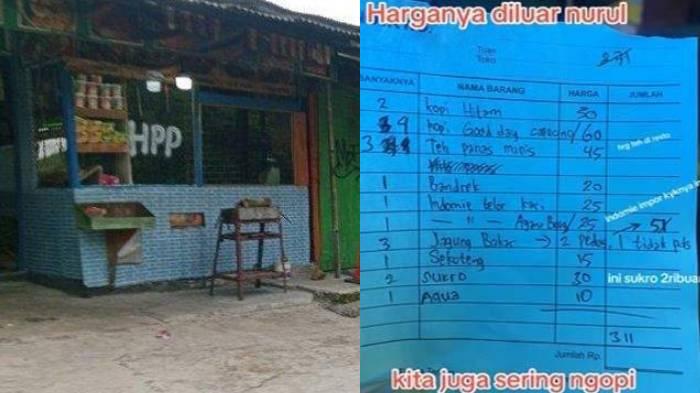 HPP
Harganya diluar nurul
Tuan
Toko
BANYAKNYA NAMA BARANG HARGA JUMLAH
2 kopi Hitam 30
4 kopi Good day capucino/60
3 Teh panas manis 45 teg teh di resto
1 Bandrek 20
1 Indomie telor kari 25 indomie impor kyknya in
1 — " — Ayam Bwg/25 → 5X
3 Jagung Bakar → 2 pedas, 1 tidak pds
1 Sekoteng 15
2 sukro 30 ini sukro 2ribuan
1 Aqua 10
311
Jumlah Rp.
kita juga sering ngopi